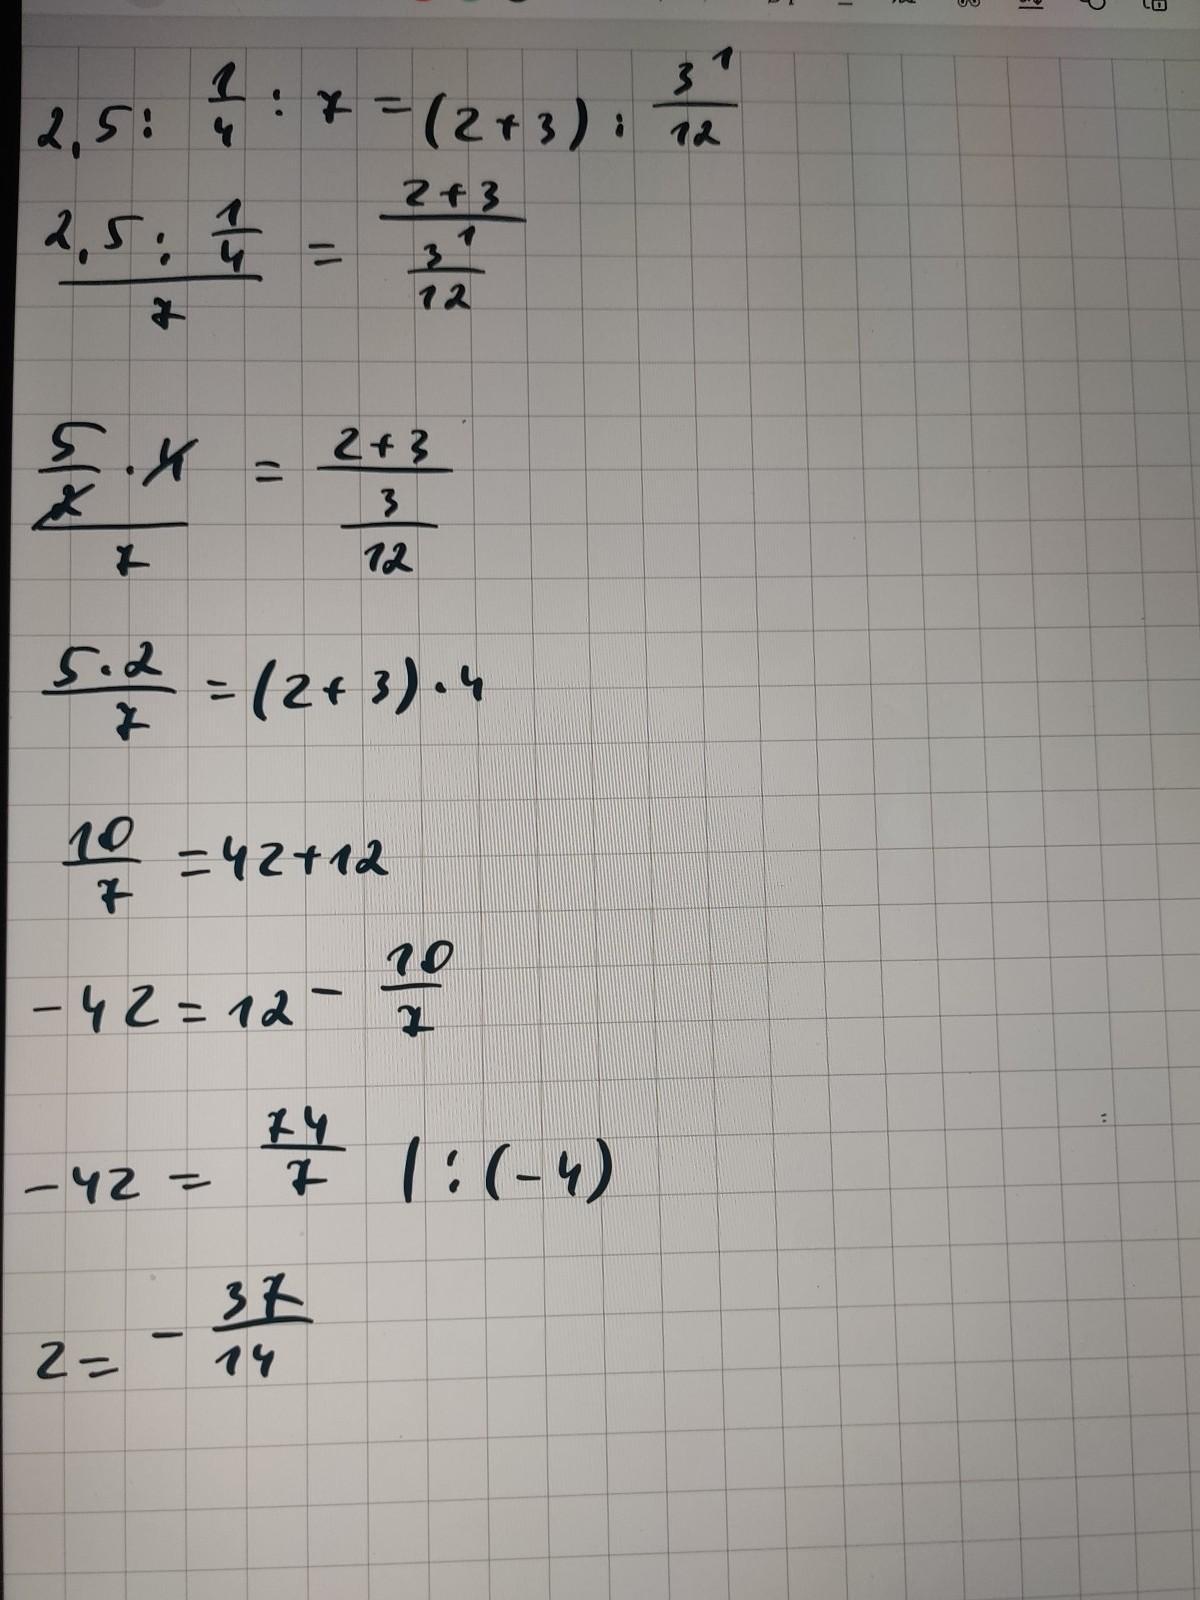 2,5 : 1/4 : 7 = (z+3) : 3^1/12
(2,5 : 1/4)/7 = (z+3)/(3^1/12)
(5/2 · 4)/7 = (z+3)/(3/12)
(5·2)/7 = (z+3)·4
10/7 = 4z+12
-4z = 12 - 10/7
-4z = 74/7 | : (-4)
z = - 37/14